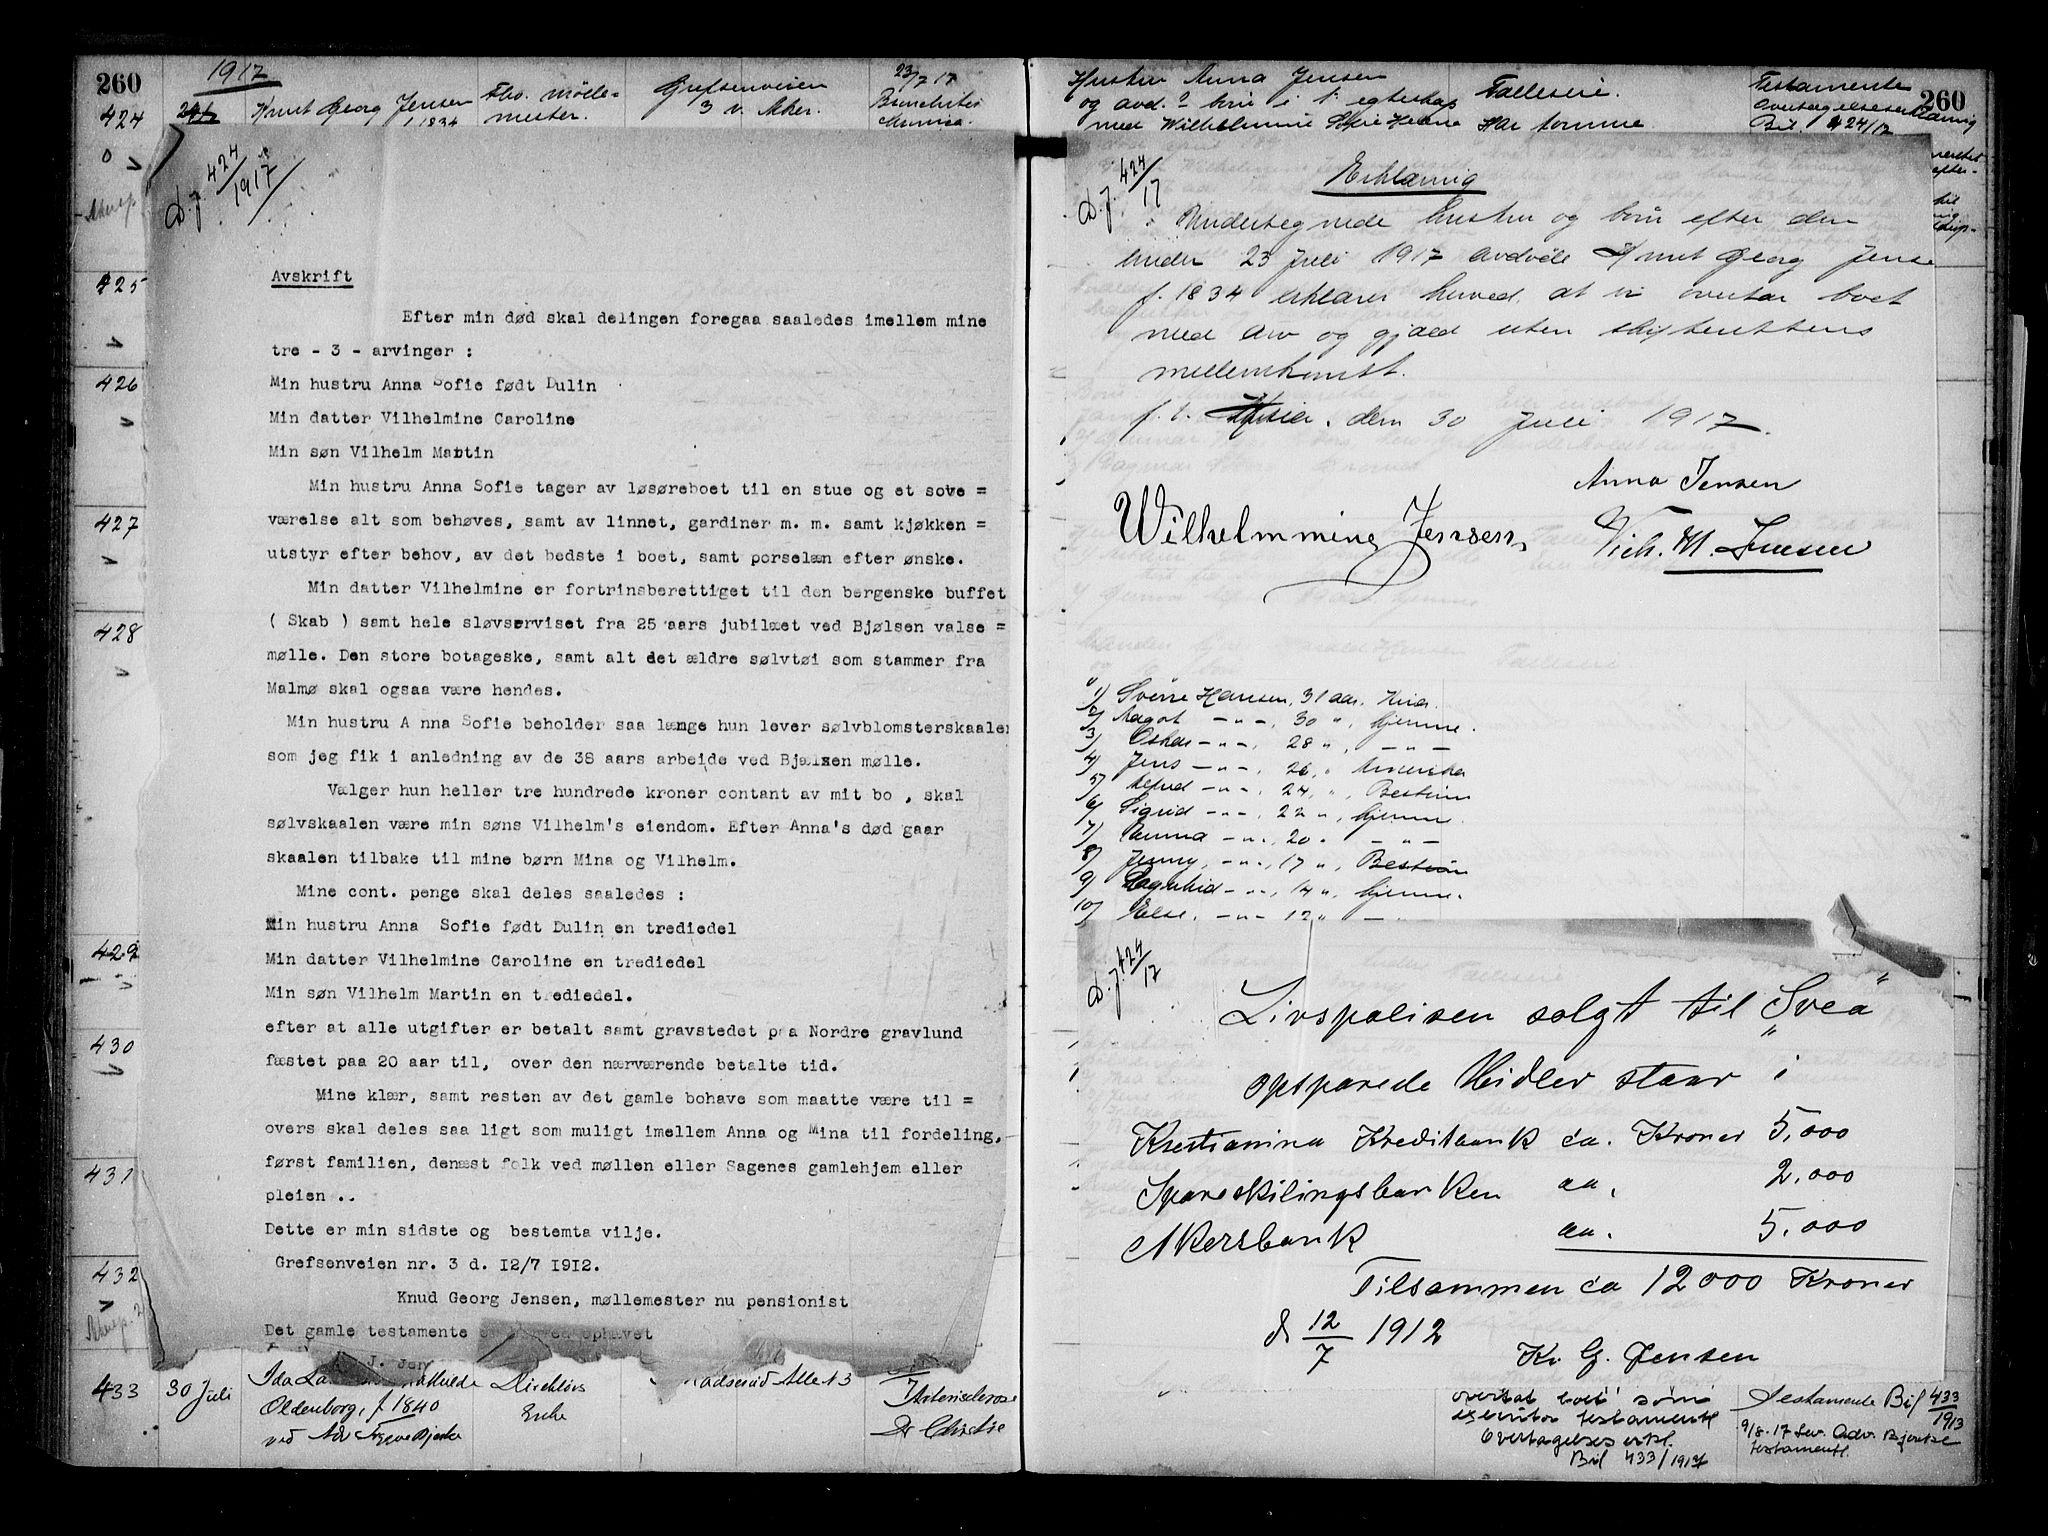 260
1917
424
Knut Georg Jensen
f. 1834
fhv. mølle-
mester.
Grefsenveien
3 v. Aker.
23/7 17
Bronchitis
D. J. 424/1917
Avskrift
Efter min død skal delingen foregaa saaledes imellem mine
tre - 3 - arvinger :
Min hustru Anna Sofie født Dulin
Min datter Vilhelmine Caroline
Min søn Vilhelm Martin
Min hustru Anna Sofie tager av løsøreboet til en stue og et sove =
værelse alt som behøves, samt av linnet, gardiner m. m. samt kjøkken =
utstyr efter behov, av det bedste i boet, samt porselæn efter ønske.
Min datter Vilhelmine er fortrinsberettiget til den bergenske buffet
( Skab ) samt hele sløvserviset fra 25 aars jubilæet ved Bjølsen valse =
mølle. Den store botageske, samt alt det ældre sølvtøi som stammer fra
Malmø skal ogsaa være hendes.
Min hustru A nna Sofie beholder saa længe hun lever sølvblomsterskaalen
som jeg fik i anledning av de 38 aars arbeide ved Bjølsen mølle.
Vælger hun heller tre hundrede kroner contant av mit bo , skal
sølvskaalen være min søns Vilhelm's eiendom. Efter Anna's død gaar
skaalen tilbake til mine børn Mina og Vilhelm.
Mine cont. penge skal deles saaledes :
Min hustru Anna Sofie født Dulin en trediedel
Min datter Vilhelmine Caroline en trediedel
Min søn Vilhelm Martin en trediedel.
efter at alle utgifter er betalt samt gravstedet paa Nordre gravlund
fæstet paa 20 aar til, over den nærværende betalte tid.
Mine klær, samt resten av det gamle bohave som maatte være til =
overs skal deles saa ligt som muligt imellem Anna og Mina til fordeling,
først familien, denæst folk ved møllen eller Sagenes gamlehjem eller
pleien ..
Dette er min sidste og bestemta vilje.
Grefsenveien nr. 3 d. 12/7 1912.
Knud Georg Jensen, møllemester nu pensionist
Det gamle testamente ophævet
J. Jen
425
426
427
428
429
430
431
432
433
30 Juli
Oldenborg, f. 1840
Enke
Allé 13
Arteriosclerose
Dr Christie
260
Hustru Anna Jensen
og avd. 2 børn i 1' egteskap
med Wilhelmine Sofie Helene
Fælleseie.
Har komme
Testamente
Overtagelseserklæring
Bil. 424/17
D. J. 424/17
Erklæring
Undertegnede hustru og børn efter den
under 23 Juli 1917 avdøde Knut Georg Jense
f. 1834 erklærer herved, at vi overtar boet
med arv og gjæld uten skifterettens
mellemkomst.
f. t. , den 30 Juli 1917.
Anna Jensen
Wilhelmmine Jensen,
Vilh. M. Jensen
1) Sverre Hansen, 31 aar, Kria.
2) Aagot -"-, 30 ", hjemme.
3) Oskar -"-, 28 ", -"-
4) Jens -"-, 26, " Amerika
5) Alfred -"-, 24, ", Bestun
6) Sigrid -"-, 22 ", hjemme.
7) Emma -"-, 20 " -"-
8) Jenny, -"-, 17 ", Bestun
9) Ragnhild -"-, 14 ", hjemme.
10) Else, -"- 12 " -"-
D. J. 424/17
Livspolisen solgt til "Svea"
opsparede Midler staar i
Krestianina Kreditbank ca. Kroner 5,000
Spareskilingsbanken aa. 2,000
Akersbank aa. 5,000
Tilsammen ca 12000 Kroner
d 12/7 1912
K. G. Jensen
overtat boet som
executor testamenti
Overtagelses erkl.
Bil 433/1917
Testamente Bil 433/1913
9/8-17 Lev. Adv. Bjerke
testamentl.